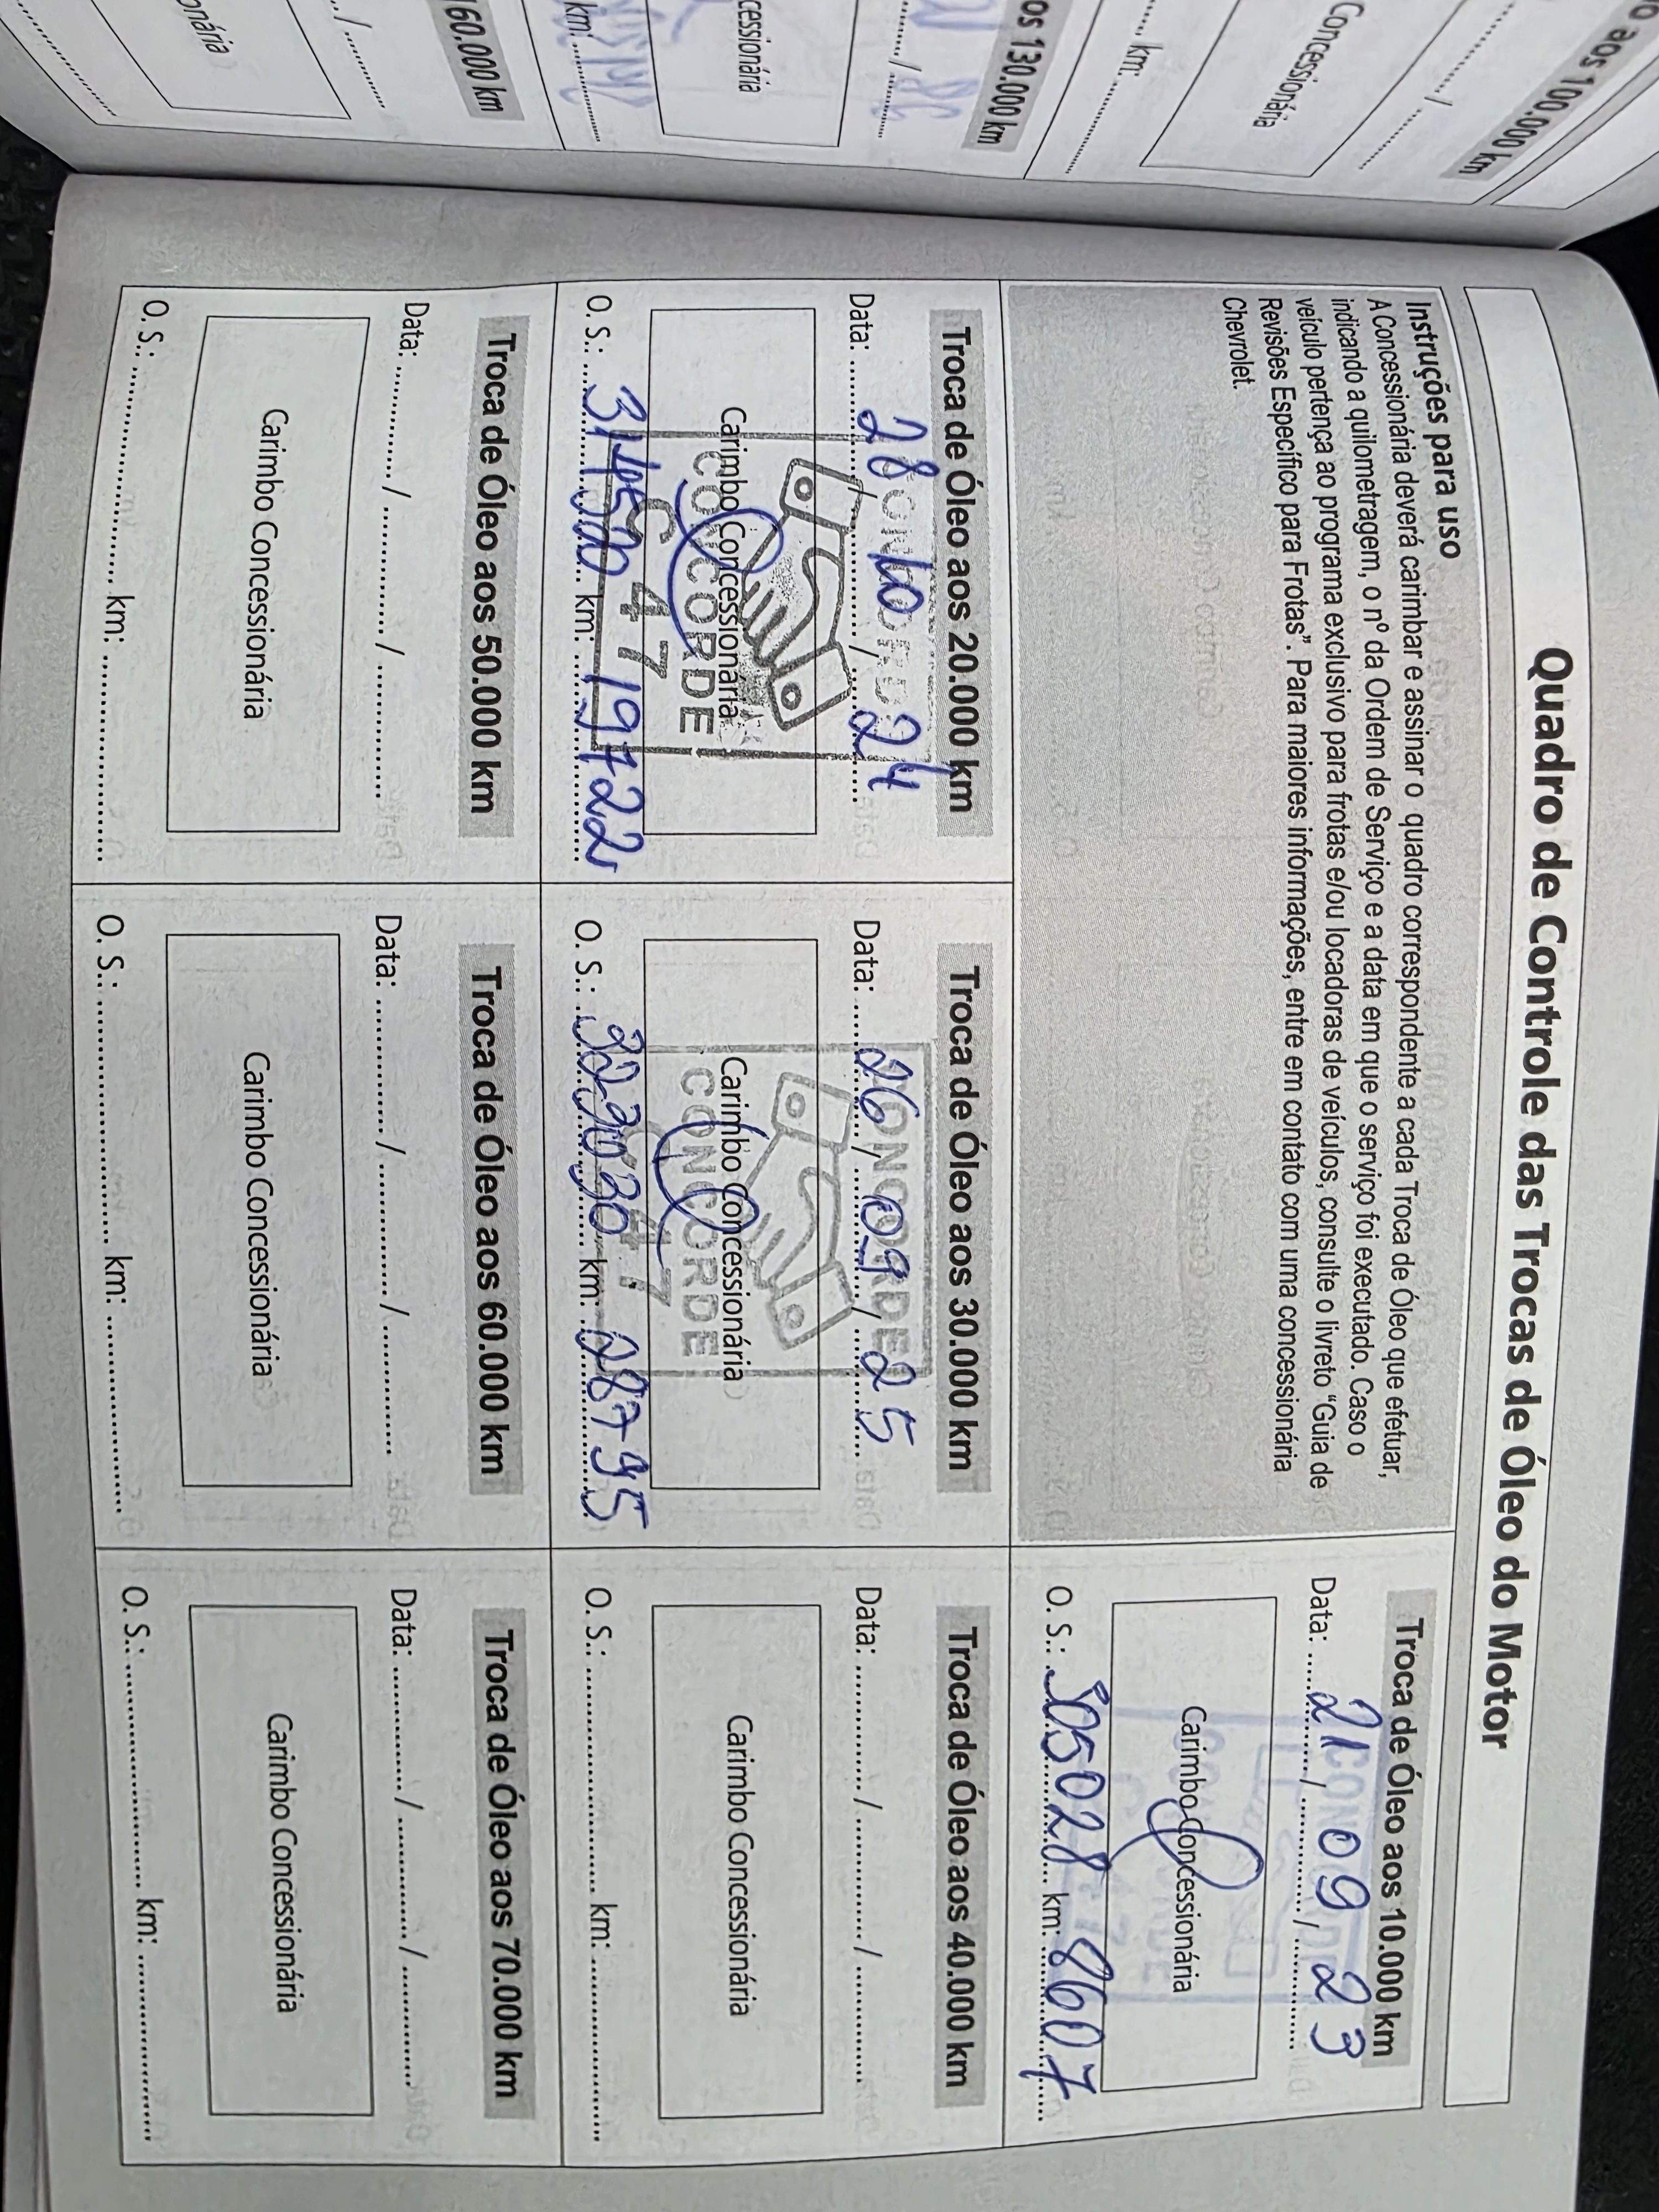 Quadro de Controle das Trocas de Óleo do Motor
Instruções para uso
A Concessionária deverá carimbar e assinar o quadro correspondente a cada Troca de Óleo que efetuar,
indicando a quilometragem, o nº da Ordem de Serviço e a data em que o serviço foi executado. Caso o
veículo pertença ao programa exclusivo para frotas e/ou locadoras de veículos, consulte o livreto “Guia de
Revisões Específico para Frotas”. Para maiores informações, entre em contato com uma concessionária
Chevrolet.
Troca de Óleo aos 10.000 km
Data: 21 / 09 / 23
Carimbo Concessionária
O. S.: 305028 km: 8607
Troca de Óleo aos 20.000 km
Data: 28 / 10 / 24
Carimbo Concessionária
CONCORDE
47
O. S.: km: 19722
Troca de Óleo aos 30.000 km
Data: 26 / 09 / 25
CONCORDE
Carimbo Concessionária
CONCORDE
47
O. S.: km: 28795
Troca de Óleo aos 40.000 km
Data: ............ / ............ / ............
Carimbo Concessionária
O. S.: ........................ km: ........................
Troca de Óleo aos 50.000 km
Data: ............ / ............ / ............
Carimbo Concessionária
O. S.: ........................ km: ........................
Troca de Óleo aos 60.000 km
Data: ............ / ............ / ............
Carimbo Concessionária
O. S.: ........................ km: ........................
Troca de Óleo aos 70.000 km
Data: ............ / ............ / ............
Carimbo Concessionária
O. S.: ........................ km: ........................
aos 100.000 km
Concessionária
km:
os 130.000 km
cessionária
km:
160.000 km
onária